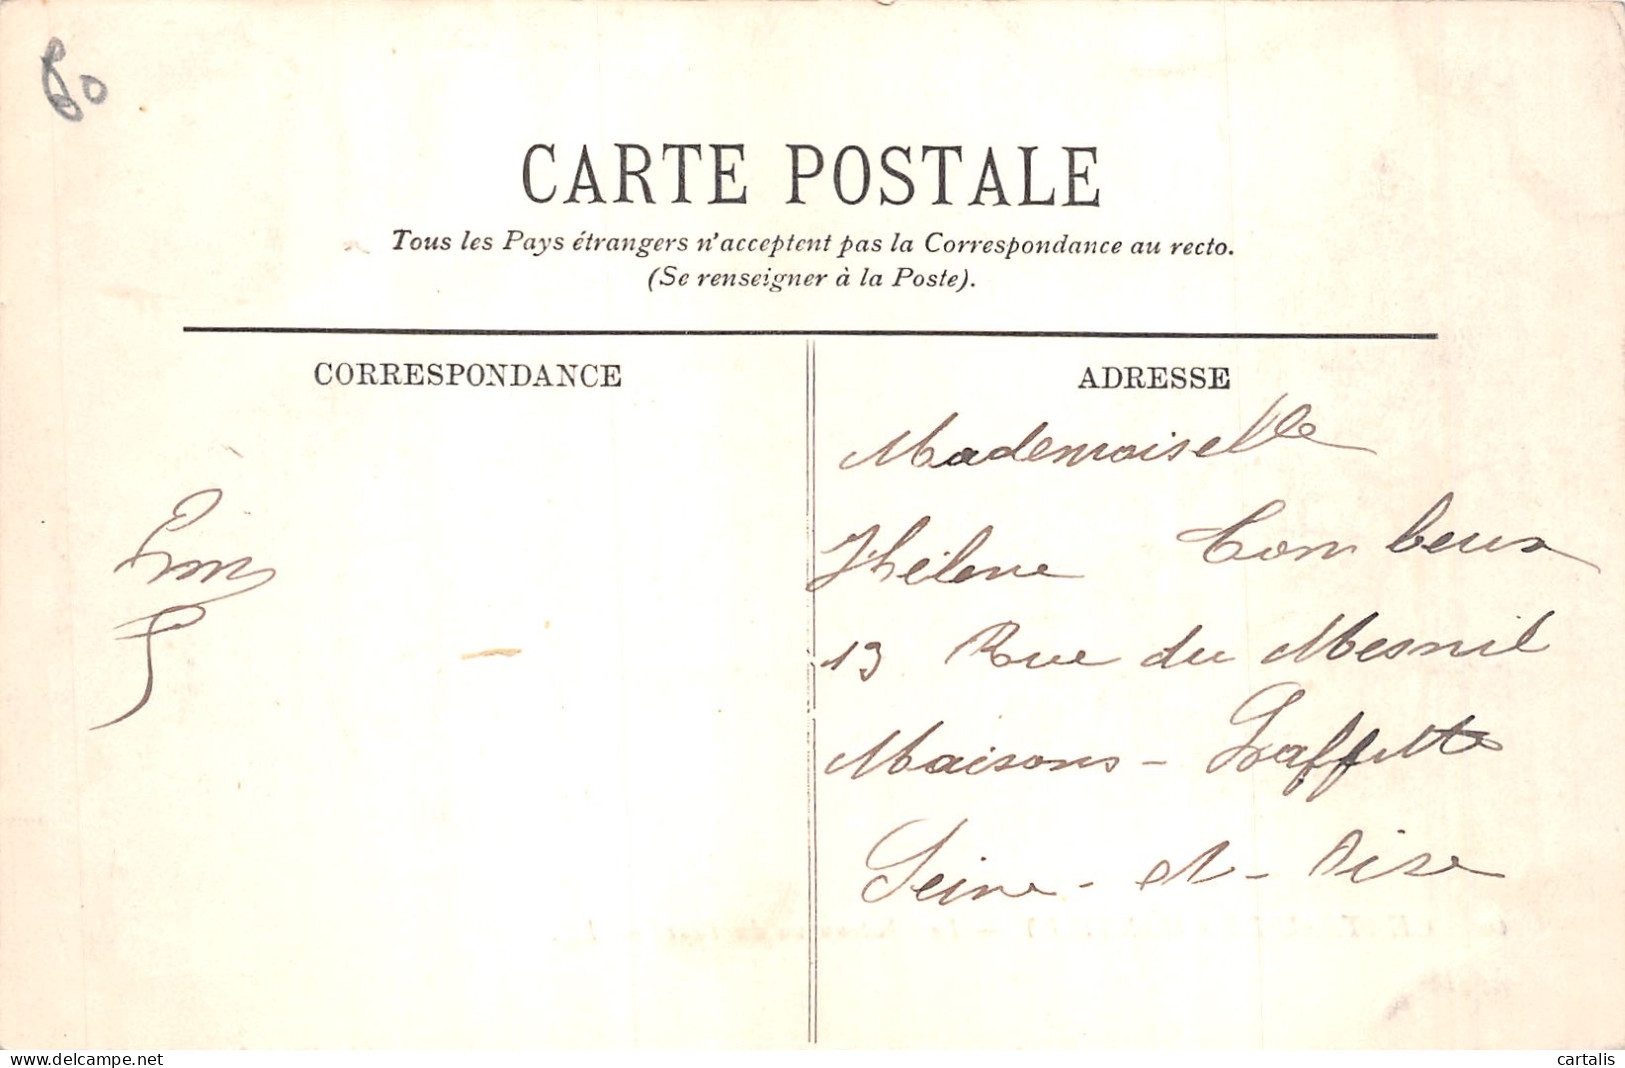 60
CARTE POSTALE
Tous les Pays étrangers n'acceptent pas la Correspondance au recto.
(Se renseigner à la Poste).
CORRESPONDANCE
ADRESSE
Mademoiselle
Hélène Combeux
13 Rue du Mesnil
Maisons - Laffitte
Seine - et - Oise
www.delcampe.net
cartalis